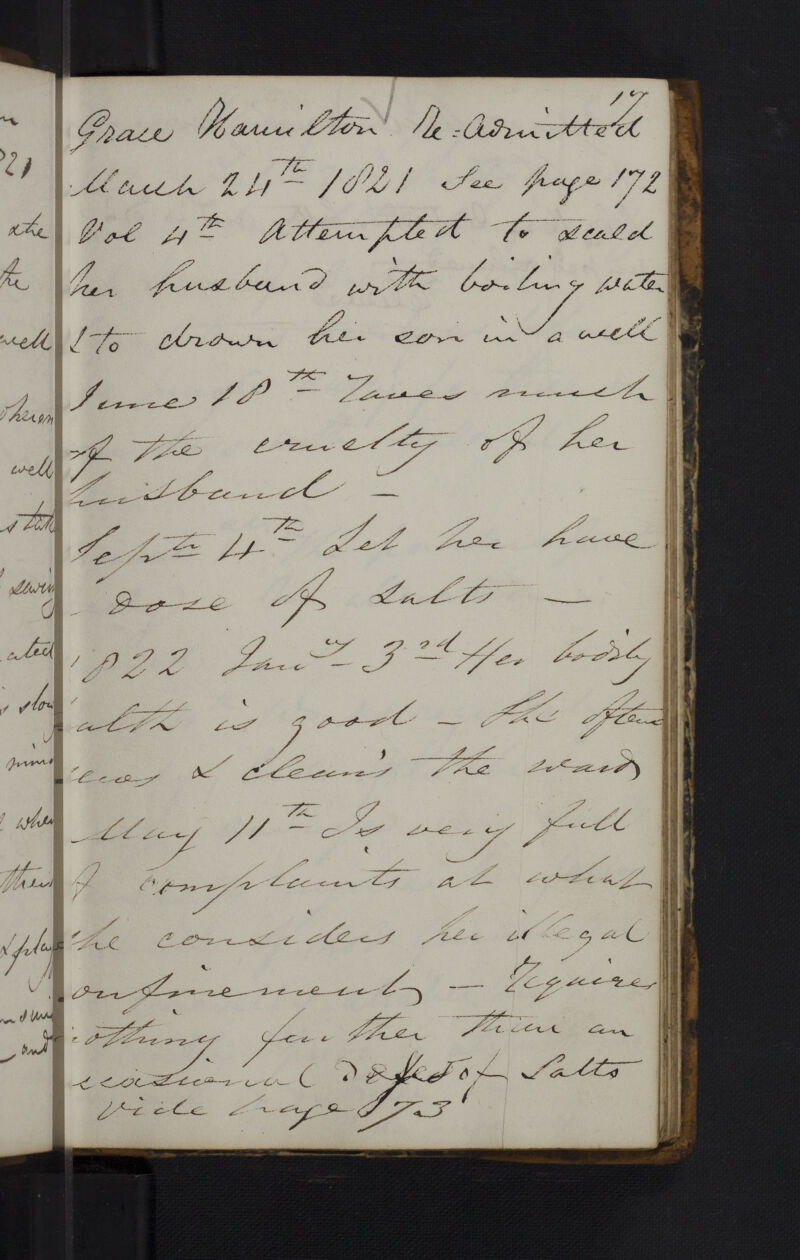 17
Grace Hamilton Re=Admitted
March 24th 1821 See page 172
Vol 4th Attempted to scald
her husband with boiling water
& to drown her son in a well
June 18th Raves much
of the cruelty of her
husband —
Septr 4th Let her have
dose of salts —
1822 Jany 3rd Her bodily
ealth is good — She often
sews & cleans the ward
May 11th Is very full
of complaints at what
she considers her illegal
confinement — Requires
nothing further than an
occasional dose of Salts
Vide page 173